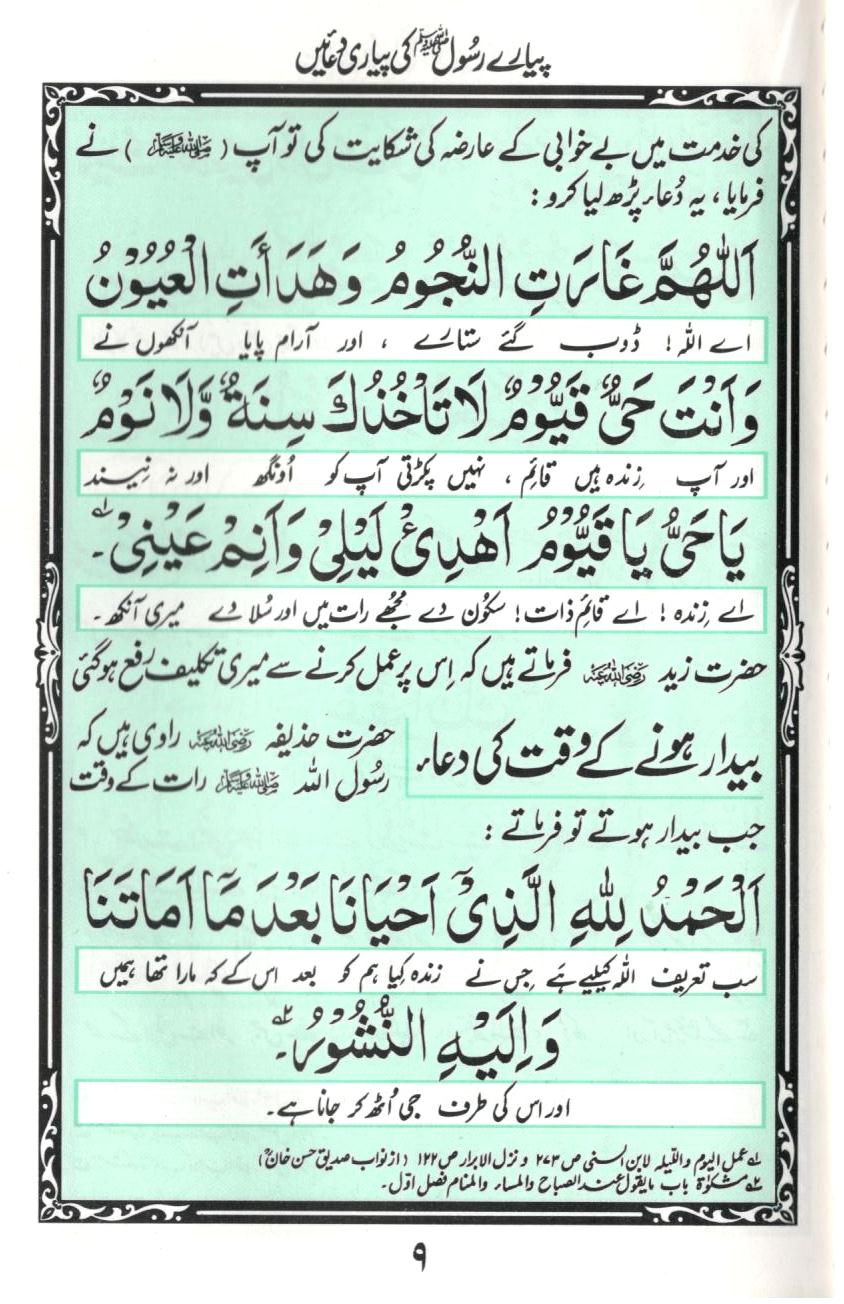 پیارے رسُول ﷺ کی پیاری دُعائیں
کی خدمت میں بے خوابی کے عارضہ کی شکایت کی تو آپ ( ﷺ ) نے
فرمایا، یہ دُعاء پڑھ لیا کرو :
اَللّٰهُمَّ غَارَتِ النُّجُوْمُ وَهَدَأَتِ الْعُيُوْنُ
اے اللہ! ڈوب گئے ستارے ، اور آرام پایا آنکھوں نے
وَاَنْتَ حَىٌّ قَيُّوْمٌ لَا تَاْخُذُكَ سِنَةٌ وَّلَا نَوْمٌ
اور آپ زِندہ ہیں قائِم ، نہیں پکڑتی آپ کو اُونگھ اور نہ نِیند
يَا حَىُّ يَا قَيُّوْمُ اَهْدِئْ لَيْلِىْ وَاَنِمْ عَيْنِىْ ۔ ؂۱
اے زِندہ ! اے قائِم ذات! سکُون دے مجھے رات میں اور سُلا دے میری آنکھ۔
حضرت زید رضی اللہ عنہ فرماتے ہیں کہ اِس پر عمل کرنے سے میری تکلیف رفع ہو گئی
بیدار ہونے کے وقت کی دعاء
حضرت حذیفہ رضی اللہ عنہ راوی ہیں کہ
رسُول اللہ ﷺ رات کے وقت
جب بیدار ہوتے تو فرماتے :
اَلْحَمْدُ لِلّٰهِ الَّذِىْٓ اَحْيَانَا بَعْدَ مَآ اَمَاتَنَا
سب تعریف اللہ کیلیے ہَے جِس نے زندہ کِیا ہم کو بعد اس کے کہ مارا تھا ہمیں
وَاِلَيْهِ النُّشُوْرُ ۔ ؂۲
اور اس کی طرف جی اُٹھ کر جانا ہے۔
؂۱ عمل الیوم واللیلہ لابن السنی ص ۲۷۳ و نزل الابرار ص ۱۲۲ ( از نواب صدیق حسن خانؒ)
؂۲ مشکوٰۃ باب مایقول عند الصباح والمساء والمنام فصل اوّل۔
۹